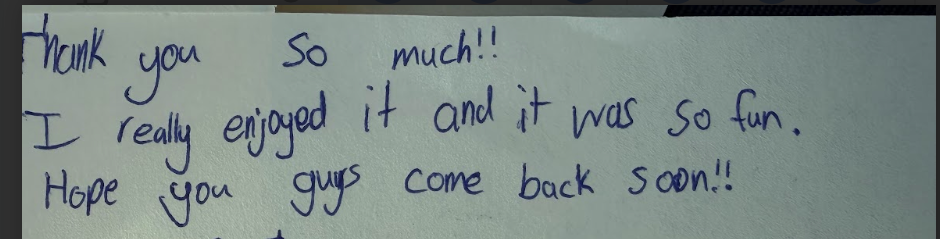 Thank you so much!!
I really enjoyed it and it was so fun.
Hope you guys come back soon!!